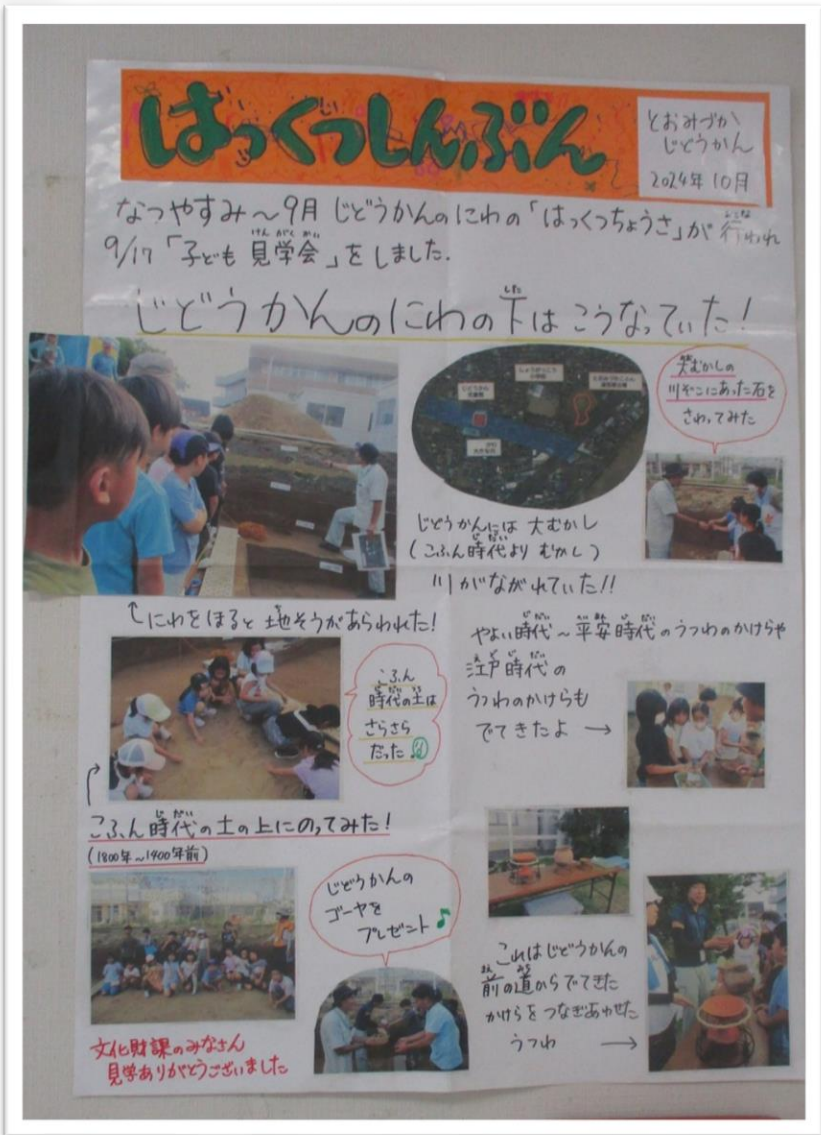 はっくつしんぶん
とおみづか
じどうかん
2024年 10月
なつやすみ～9月 じどうかんのにわの「はっくつちょうさ」が 行われ
9/17「子ども 見学会」をしました.
じどうかんのにわの下はこうなっていた!
大むかしの
川ぞこにあった石を
さわってみた
じどうかんには 大むかし
(こふん時代より むかし)
川がながれていた!!
↑にわをほると 地そうがあらわれた!
やよい時代～平安時代のうつわのかけらや
江戸時代の
うつわのかけらも
でてきたよ →
こふん
時代の土は
さらさら
だった
こふん時代の土の上にのってみた!
(1800年～1400年前)
じどうかんの
ゴーヤを
プレゼント♪
これはじどうかんの
前の道からでてきた
かけらをつなぎあわせた
うつわ →
文化財課のみなさん
見学ありがとうございました